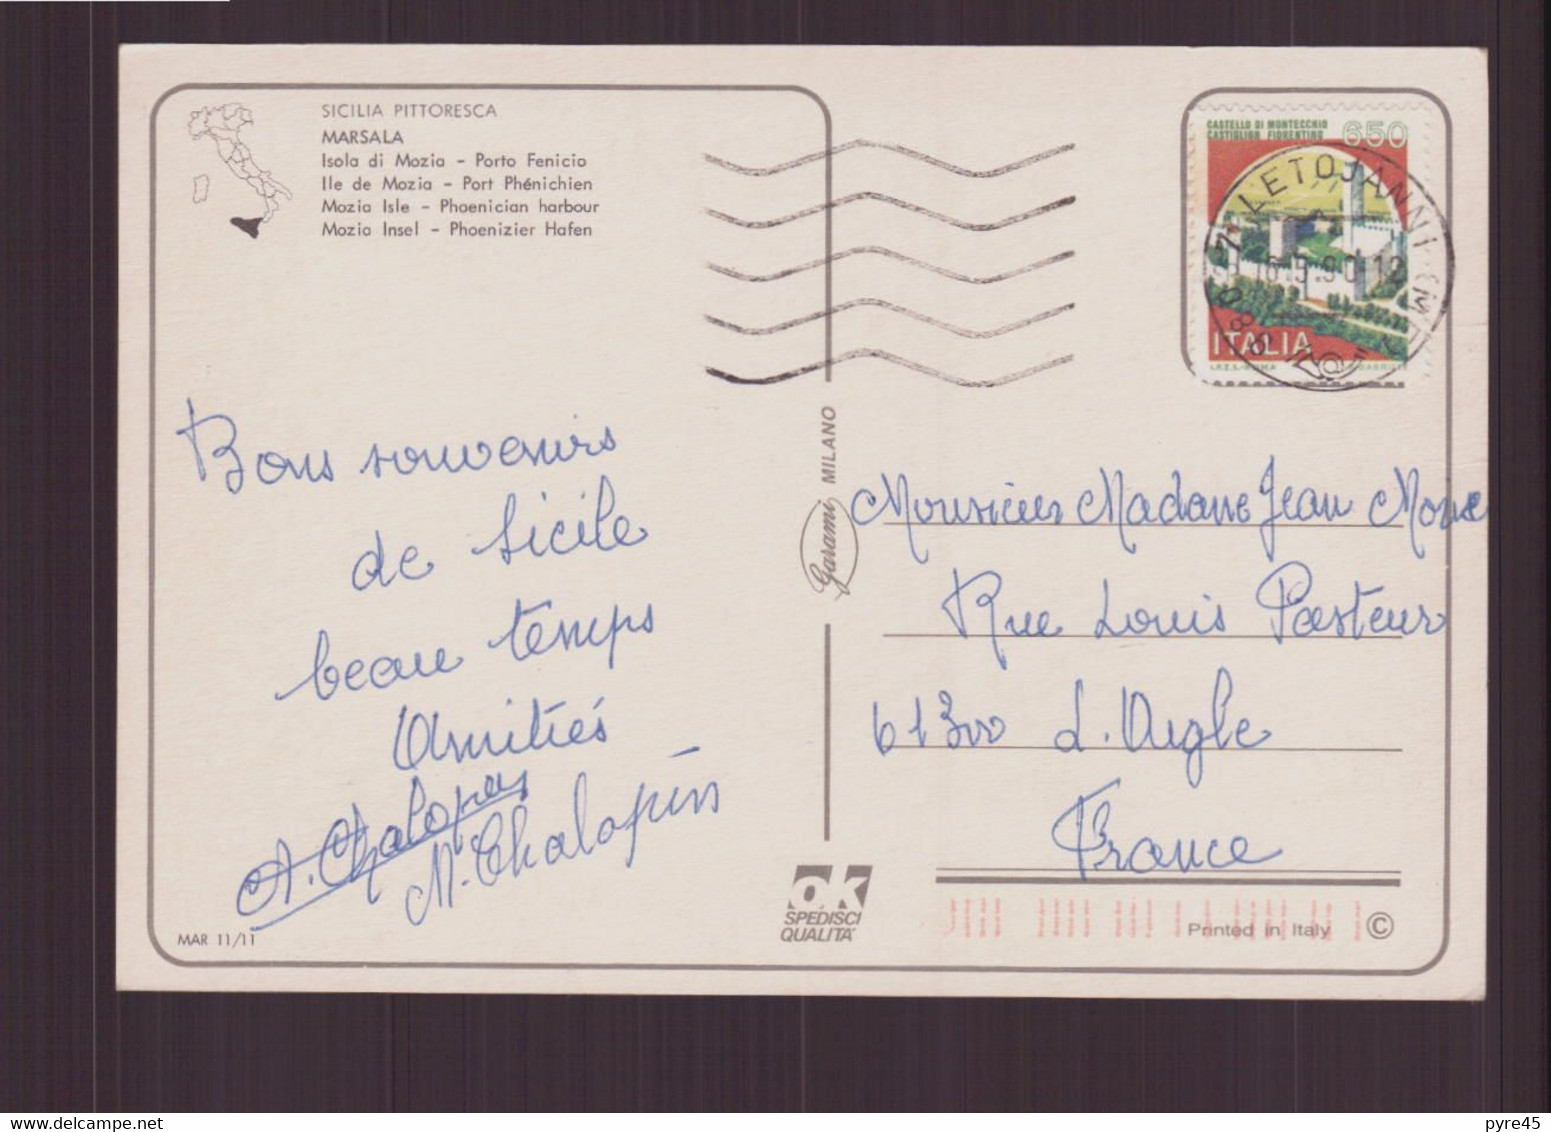 SICILIA PITTORESCA
MARSALA
Isola di Mozia - Porto Fenicio
Ile de Mozia - Port Phénichien
Mozia Isle - Phoenician harbour
Mozia Insel - Phoenizier Hafen
CASTELLO DI MONTECCHIO
CASTIGLION FIORENTINO
650
LETOJANNI (ME)
16.5.90.12
98037
ITALIA
I.P.Z.S.-ROMA
Bons souvenirs
de Sicile
beau temps
Amitiés
A. Chalopin
M. Chalopin
MAR 11/11
Garami MILANO
OK
SPEDISCI
QUALITA'
Monsieur Madame Jean
Rue Louis Pasteur
61300 L'Aigle
France
Printed in Italy ©
pyre45